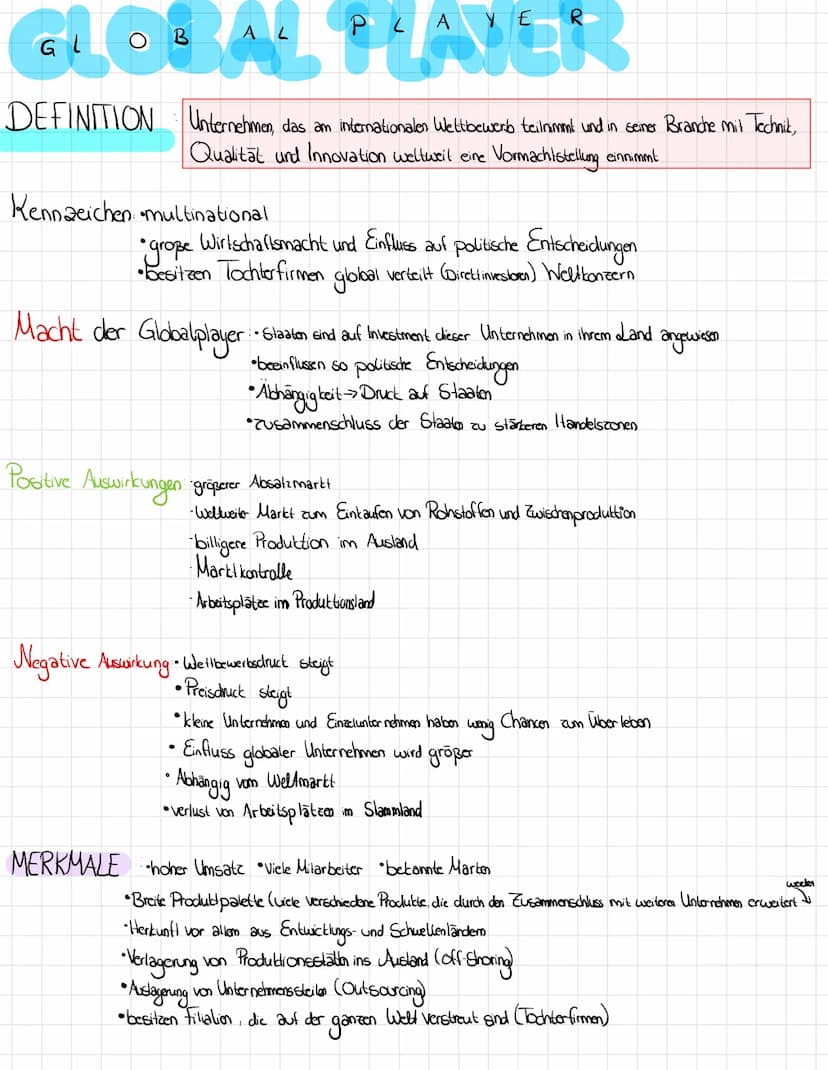 GLOBAL PLAYER
DEFINITION : Unternehmen, das am internationalen Wettbewerb teilnimmt und in seiner Branche mit Technik,
Qualität und Innovation weltweit eine Vormachtstellung einnimmt
Kennzeichen: •multinational
•große Wirtschaftsmacht und Einfluss auf politische Entscheidungen
•besitzen Tochterfirmen global verteilt (Direktinvestoren) Weltkonzern
Macht der Globalplayer: •Staaten sind auf Investment dieser Unternehmen in ihrem Land angewiesen
•beeinflussen so politische Entscheidungen
•Abhängigkeit→Druck auf Staaten
•zusammenschluss der Staaten zu stärkeren Handelszonen
Positive Auswirkungen ·größerer Absatzmarkt
·Weltweiter Markt zum Einkaufen von Rohstoffen und Zwischenproduktion
·billigere Produktion im Ausland
·Marktkontrolle
·Arbeitsplätze im Produktionsland
Negative Auswirkung •Wettbewerbsdruck steigt
•Preisdruck steigt
•kleine Unternehmen und Einzelunternehmen haben wenig Chancen zum Überleben
•Einfluss globaler Unternehmen wird größer
•Abhängig vom Weltmarkt
•verlust von Arbeitsplätzen im Stammland
MERKMALE •hoher Umsatz •Viele Mitarbeiter •bekannte Marken
•Breite Produktpalette (viele verschiedene Produkte, die durch den Zusammenschluss mit weiteren Unternehmen erweitert werden)
•Herkunft vor allem aus Entwicklungs- und Schwellenländern
•Verlagerung von Produktionsstätten ins Ausland (Off-Shoring)
•Auslagerung von Unternehmensteilen (Outsourcing)
•besitzen Filialien, die auf der ganzen Welt verstreut sind (Tochterfirmen)